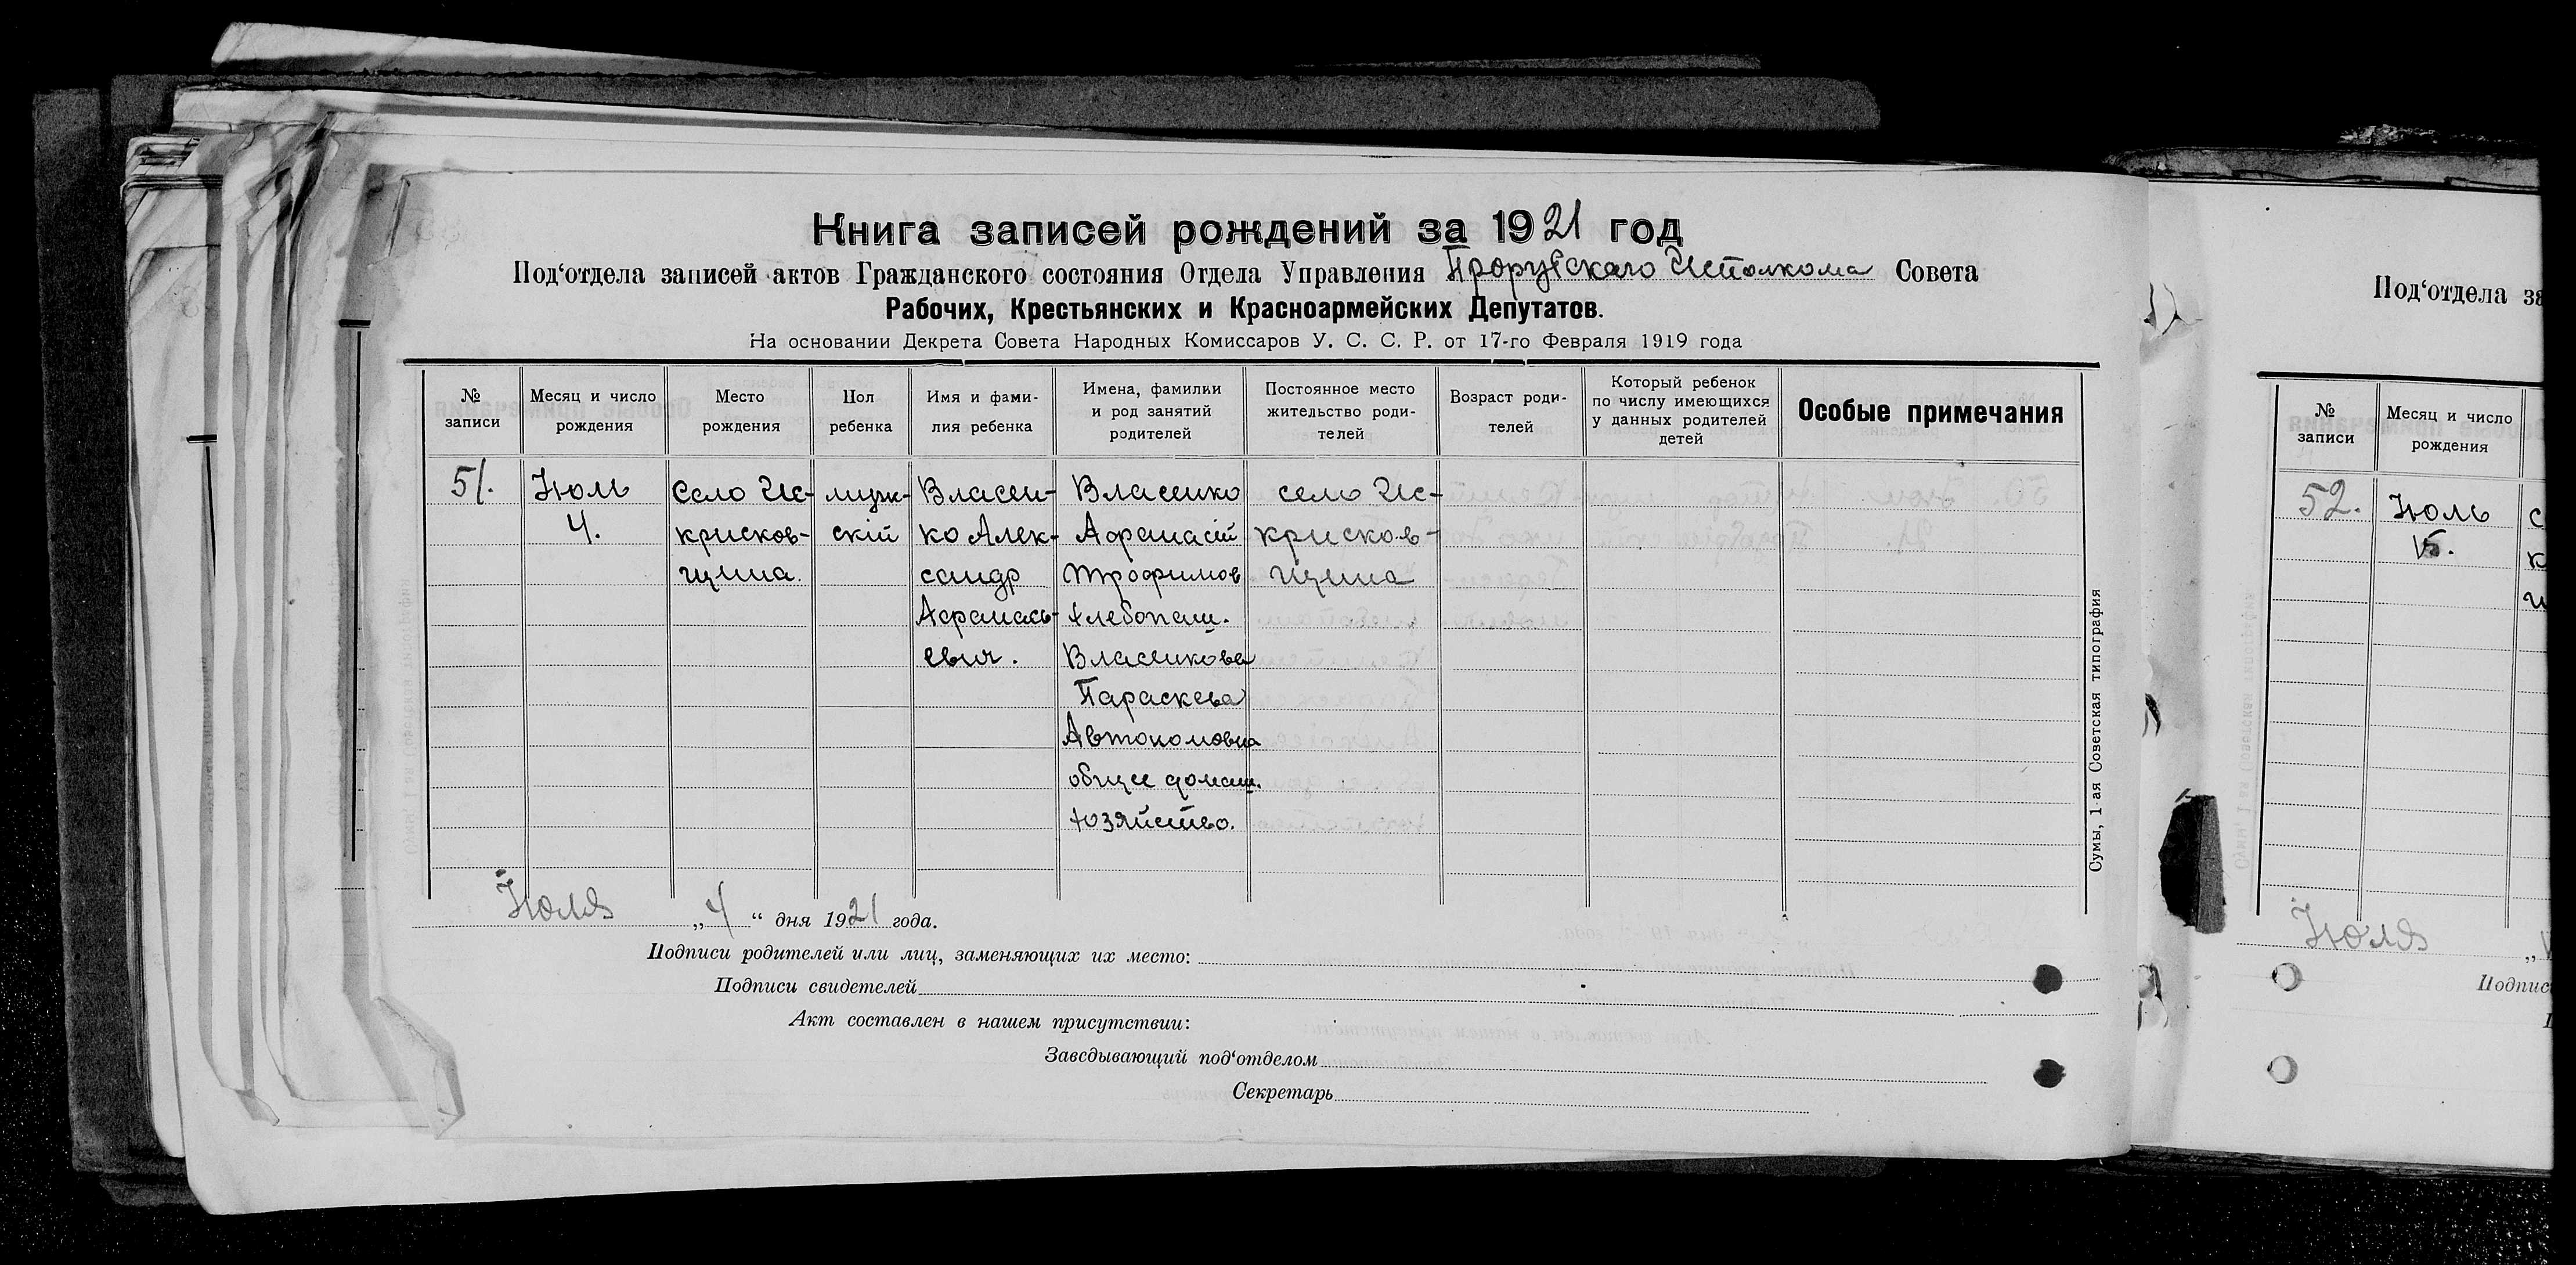 Книга записей рождений за 1921 год
Под‘отдела записей актов Гражданского состояния Отдела Управления Прорубскаго Исполкома Совета
Рабочих, Крестьянских и Красноармейских Депутатов.
На основании Декрета Совета Народных Комиссаров У. С. С. Р. от 17-го Февраля 1919 года
№ записи
Месяц и число рождения
Место рождения
Пол ребенка
Имя и фами-
лия ребенка
Имена, фамилии
и род занятий
родителей
Постоянное место
жительство роди-
телей
Возраст роди-
телей
Который ребенок
по числу имеющихся
у данных родителей
детей
Особые примечания
51.
Июль
4.
Село Ис-
крисков-
щина.
муж-
скій
Власен-
ко Алек-
сандр
Афанась-
евич.
Власенко
Афанасій
Трофимов
хлебопаш.
Власенкова
Параскева
Автономовна
общее домаш.
хозяйство.
село Ис-
крисков-
щина
Июля „4“ дня 1921 года.
Подписи родителей или лиц, заменяющих их место:
Подписи свидетелей
Акт составлен в нашем присутствии:
Заведывающий под‘отделом
Секретарь
Сумы, 1-ая Советская типография
Под‘отдела за
№
записи
Месяц и число
рождения
52.
Июль
15.
с
к
щ
Июля
Подпис